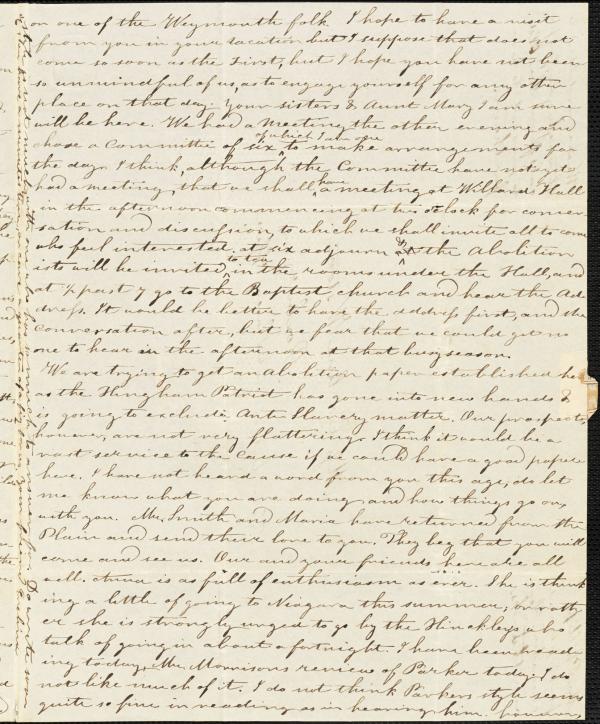 on one of the Weymouth folk I hope to have a visit
from you in your vacation but I suppose that does not
come so soon as the First, but I hope you have not been
so unmindful of us, as to engage yourself for any other
place on that day. Your sisters & Aunt Mary I am sure
will be here. We had a meeting the other evening and
of which I am one
chose a Committee of six to make arrangements for
the day. I think, although the Committee have not yet
had a meeting, that we shall have a meeting at Willard Hall
in the afternoon commencing at two o'clock for conver
sation and discussion, to which we shall invite all to come
who feel interested, at six adjourn & the Abolition
ists will be invited to tea in the rooms under the Hall, and
at ½ past 7 go to the Baptist church and hear the Ad
dress. It would be better to have the address first, and the
conversation after, but we fear that we could get no
one to hear in the afternoon at that busy season.
We are trying to get an Abolition paper established here
as the Hingham Patriot has gone into new hands &
is going to exclude Anti Slavery matter. Our prospects,
however, are not very flattering. I think it would be a
vast service to the cause if we could have a good paper
here. I have not heard a word from you this age, do let
me know what you are doing, and how things go on,
with you. Mr. Smith and Maria have returned from the
Plain and send their love to you. They beg that you will
come and see us. Our and your friends here are all
well. Anna is as full of enthusiasm as ever. She is think
ing a little of going to Niagara this summer, or rath
er she is strongly urged to go by the Hinckleys who
talk of going in about a fortnight. I have been read
ing today, Mr. Morrisons review of Parker today. I do
not like much of it. I do not think Parkers style seems
quite so fine in reading as in hearing him. however,